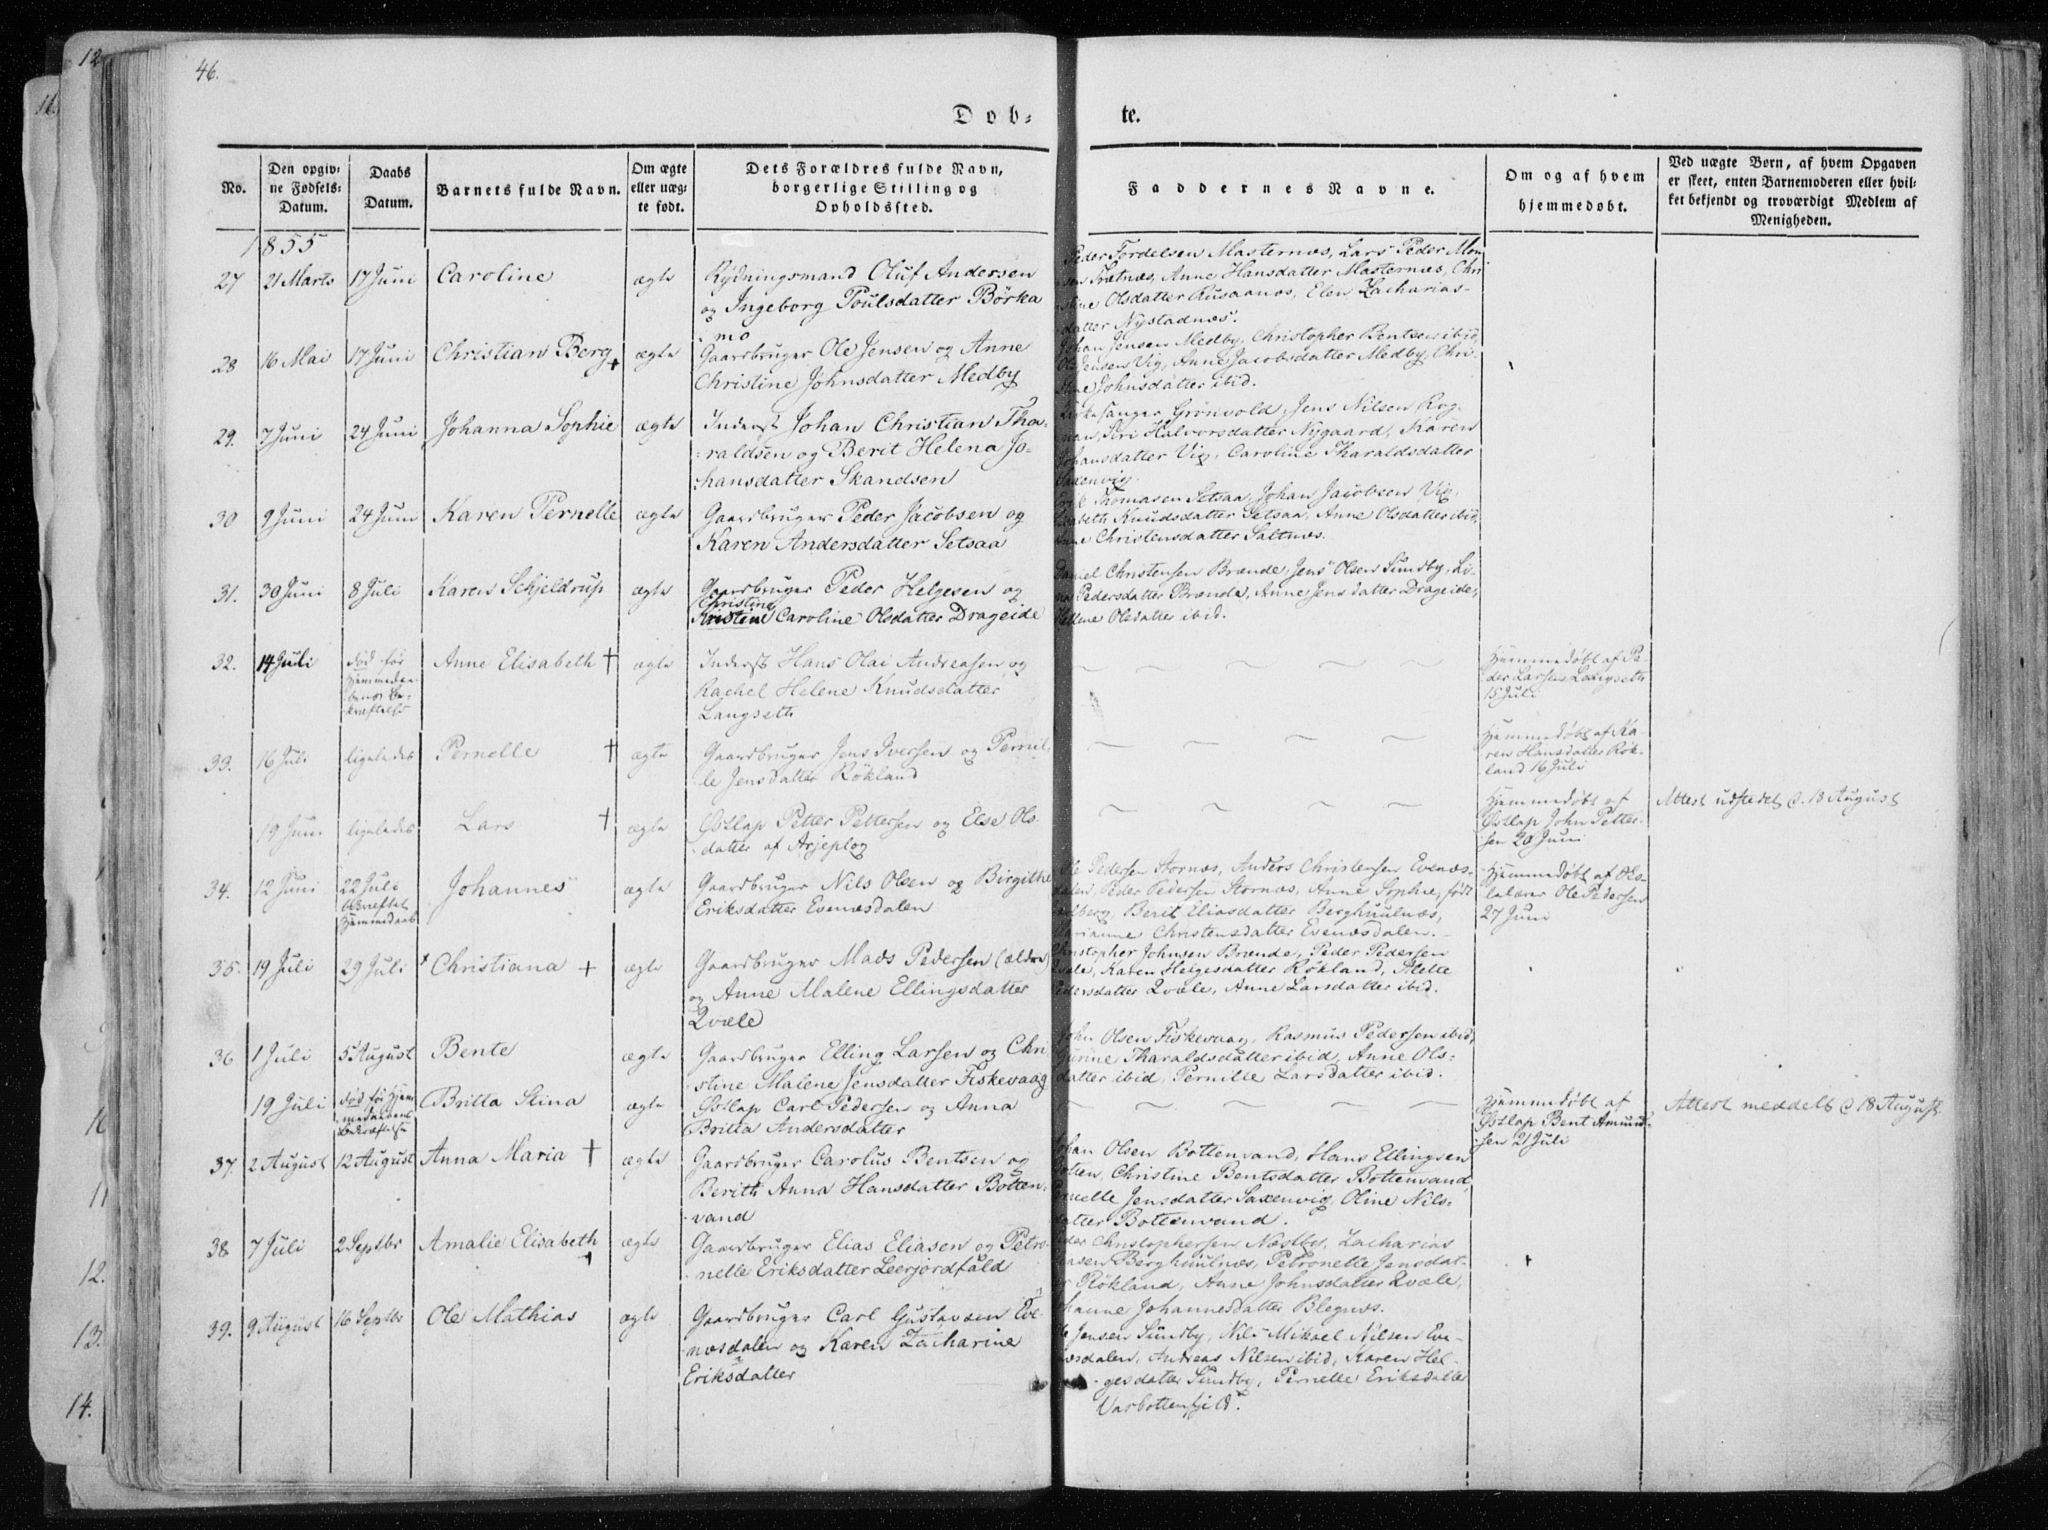 12
11.
46.
Døb=
te.
No.
Den opgiv-
ne Fødsels-
Datum.
Daabs
Datum.
Barnets fulde Navn.
Om ægte
eller uæg-
te født.
Dets Forældres fulde Navn,
borgerlige Stilling og
Opholdssted.
Faddernes Navne.
Om og af hvem
hjemmedøbt.
Ved uægte Børn, af hvem Opgaven
er skeet, enten Barnemoderen eller hvil-
ket bekjendt og troværdigt Medlem af
Menigheden.
1855
27 21 Marts 17 Juni Caroline ægte
Rydningsmand Oluf Andersen
og Ingeborg Poulsdatter Børka
-mo
Peder Tordelsen Masternæs, Lars Peder Mon
-sen Trætnæs, Anne Hansdatter Masternæs, Chri
-stine Olsdatter Rusaanæs, Elen Zacharias-
datter Nystadnæs.
28 16 Mai 17 Juni Christian Berg + ægte
Gaardbruger Ole Jensen og Anne
Christine Johnsdatter Medby
Johan Jensen Medby, Christopher Bentsen ibid,
Ole Jensen Vig, Anne Jacobsdatter Medby, Chri-
stine Johnsdatter ibid.
29. 7 Juni 24 Juni Johanna Sophie ægte
Inderst Johan Christian Tha-
-raldsen og Berit Helena Jo-
hansdatter Skandsen
Kirkesanger Grönvold, Jens Nilsen Rog-
nan, Siri Halvorsdatter Nygaard, Karen
Johansdatter Vig, Caroline Tharaldsdatter
Saxenvig.
30 9 Juni 24 Juni Karen Pernelle ægte
Gaardbruger Peder Jacobsen og
Karen Andersdatter Setsaa
Erik Thomasen Setsaa, Johan Jacobsen Vig,
Elisabeth Knudsdatter Setsaa, Anne Olsdatter ibid,
Anne Christensdatter Saltnæs.
31. 30 Juni 8 Juli Karen Schjeldrup ægte
Gaardbruger Peder Helgesen og
Christine
Kristine Caroline Olsdatter Drageide
Daniel Christensen Brænde, Jens Olsen Sundby, Li-
na Pedersdatter Brænde, Anne Jensdatter Drageide,
Hellene Olsdatter ibid.
32. 14 Juli død før
Hjemmedaa-
bens Be-
kræftelse
Anne Elisabeth + ægte
Inderst Hans Olai Andreasen og
Rachel Helene Knudsdatter
Langseth
Hjemmedøbt af Pe-
der Larsen Langseth
15 Juli
33. 16 Juli ligeledes Pernelle + ægte
Gaardbruger Jens Iversen og Pernil-
le Jensdatter Røkland
Hjemmedøbt af Ka-
ren Hansdatter Røk-
land 16 Juli
19 Juni ligeledes Lars + ægte
Østlap Petter Pettersen og Else Ols-
datter af Arjeplog
Hjemmedøbt af
Østlap John Petter-
sen 20 Juni
Attest udstedet d. 18 August
34. 12 Juni 22 Juli
Bekræftet
Hjemmedaab
Johannes ægte
Gaardbruger Nils Olsen og Birgithe
Eriksdatter Evenæsdalen
Ole Pedersen Stornæs, Anders Christensen Evenæs-
dalen, Peder Pedersen Stornæs, Anne Sophie, født
Berit Eliasdatter Berghuulnæs,
Marianne Christensdatter Evenæsdalen.
Hjemmedøbt af Sko-
lelærer Ole Pedersen
27 Juni
35. 19 Juli 29 Juli + Christiana + ægte
Gaardbruger Mads Pedersen (ældre)
og Anne Malene Ellingsdatter
Qvæle
Christopher Johnsen Brænde, Peder Pedersen
Qvæle, Karen Helgesdatter Røkland, Mette
Pedersdatter Qvæle, Anne Larsdatter ibid.
36 1 Juli 5 August Bente ægte
Gaardbruger Elling Larsen og Chri
-stine Malene Jensdatter Fiskevaag
John Olsen Fiskevaag, Rasmus Pedersen ibid,
Gurine Tharaldsdatter ibid, Anne Ols-
datter ibid, Pernille Larsdatter ibid.
19 Juli død før Hjem
medaabens
Bekræftelse
Britta Stina ægte
Østlap Carl Pedersen og Anna
Britta Andersdatter
Hjemmedøbt af
Østlap Bent Amund-
sen 21 Juli
Attest meddelt d 18 August.
37. 2 August 12 August Anna Maria + ægte
Gaardbruger Carolus Bentsen og
Berith Anna Hansdatter Botten-
-vand
Johan Olsen Bottenvand, Hans Ellingsen
Botten, Christine Bentsdatter Bottenvand,
Pernelle Jensdatter Saxenvig, Oline Nils-
datter Bottenvand.
38 7 Juli 2 Septbr Amalie Elisabeth + ægte
Gaardbruger Elias Eliasen og Petro-
-nelle Eriksdatter Leerjordfald
Peder Christophersen Næstby, Zacharias
Eliasen Berghuulnæs, Petronelle Jensdat-
ter Røkland, Anne Johnsdatter Qvæle,
Johanne Johannesdatter Blegnæs.
39. 9 August 16 Septbr Ole Mathias ægte
Gaardbruger Carl Gustavsen Eve-
næsdalen og Karen Zacharine
Eriksdatter
Ole Jensen Sundby, Nils Mikael Nilsen Eve-
næsdalen, Andreas Nilsen ibid, Karen Hel-
-gesdatter Sundby, Pernelle Eriksdatter
Vasbottenfjeld.
10
11
12.
13.
14.